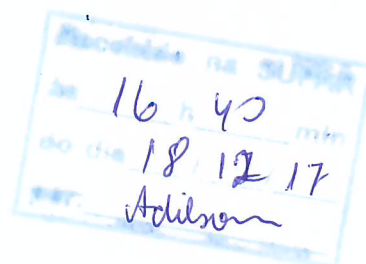 Recebido na SUPRAM
às 16 h 40 min
do dia 18 12 17
por: Adilson